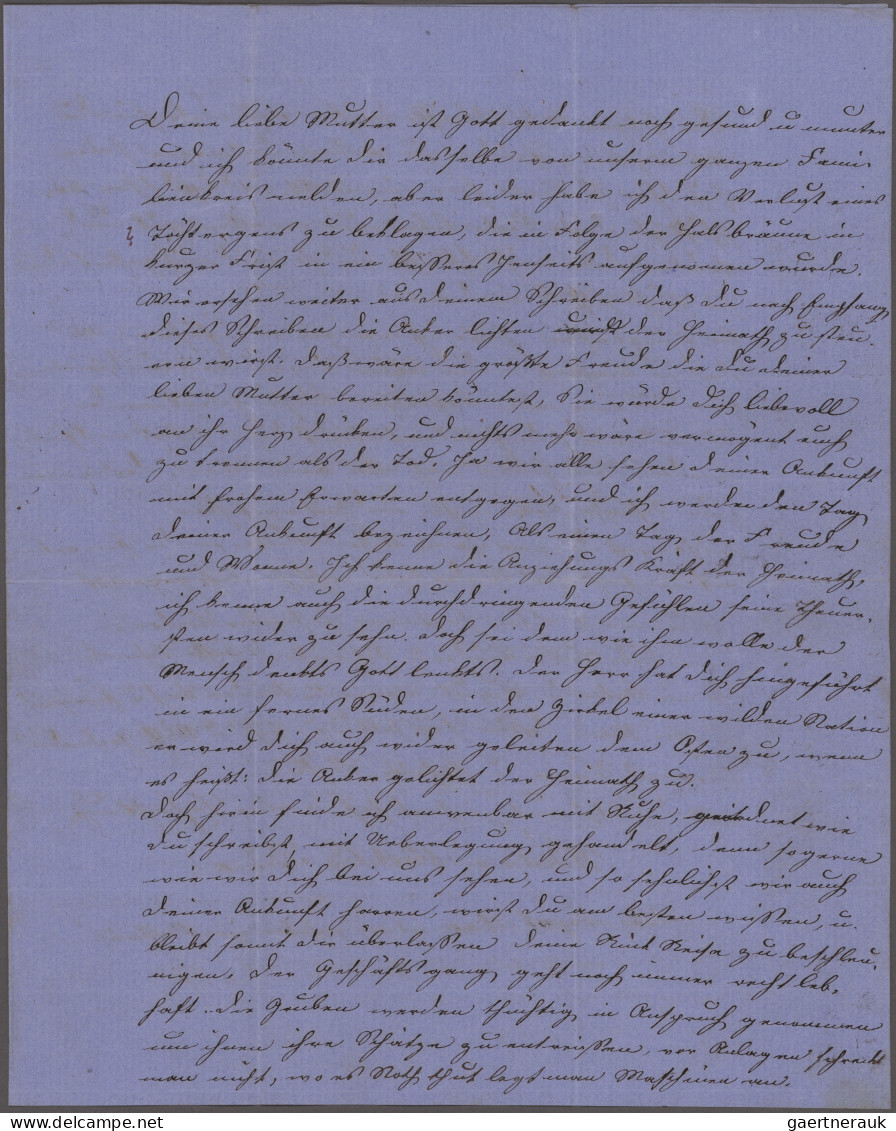 Deine liebe Mutter ist Gott gedankt noch gesund u munter
und ich könnte dir dasselbe von unserm ganzen Fami-
lienkreis melden, aber leider habe ich den Verlust eines
Töchtergens zu beklagen, die in Folge der Halsbräune in
kurzer Frist in ein besseres Jenseits aufgenomen wurde.
Wir ersehen weiter aus deinem Schreiben daß du nach Empfang
dieses Schreiben die Anker lichten der Heimath zu steu-
ern wirst. Daß wäre die größte Freude die du deiner
lieben Mutter bereiten könntest, Sie würde dich liebevoll
an ihr Herz drücken, und nichts mehr wäre vermögent euch
zu trennen als der Tod. Ja wir alle sehen deiner Ankunft
mit frohem Erwarten entgegen, und ich werde den Tag
deiner Ankunft bezeichnen, als einen Tag der Freude
und Wonne. Ich kenne die Anziehungs Kraft der Heimath,
ich kenne auch die durchdringenden Gefühlen seine Theuer-
sten wider zu sehn. Doch sei dem wie ihm wolle der
Mensch denkts Gott lenkts. Der Herr hat dich hingeführt
in ein fernes Süden, in den Zirkel einer wilden Nation
er wird dich auch wider geleiten dem Osten zu, wenn
es heißt: die Anker gelichtet der Heimath zu.
Doch hirin finde ich anwenbar mit Ruhe, geordnet wie
du schreibst, mit Ueberlegung gehandelt, denn so gerne
wie wir dich bei uns sehen, und so sehnlichst wir auch
deiner Ankunft harren, wirst du am besten wissen, u.
bleibt somit dir überlassen deine Reise zu beschleu-
nigen. Der Geschäftsgang geht noch immer recht leb-
haft. die Gruben werden thüchtig in Anspruch genommen
um ihnen ihre Schätze zu entreissen, vor Anlagen schreckt
man nicht, wo es Noth thut legt man Maschinen an.
www.delcampe.net
gaertnerauk